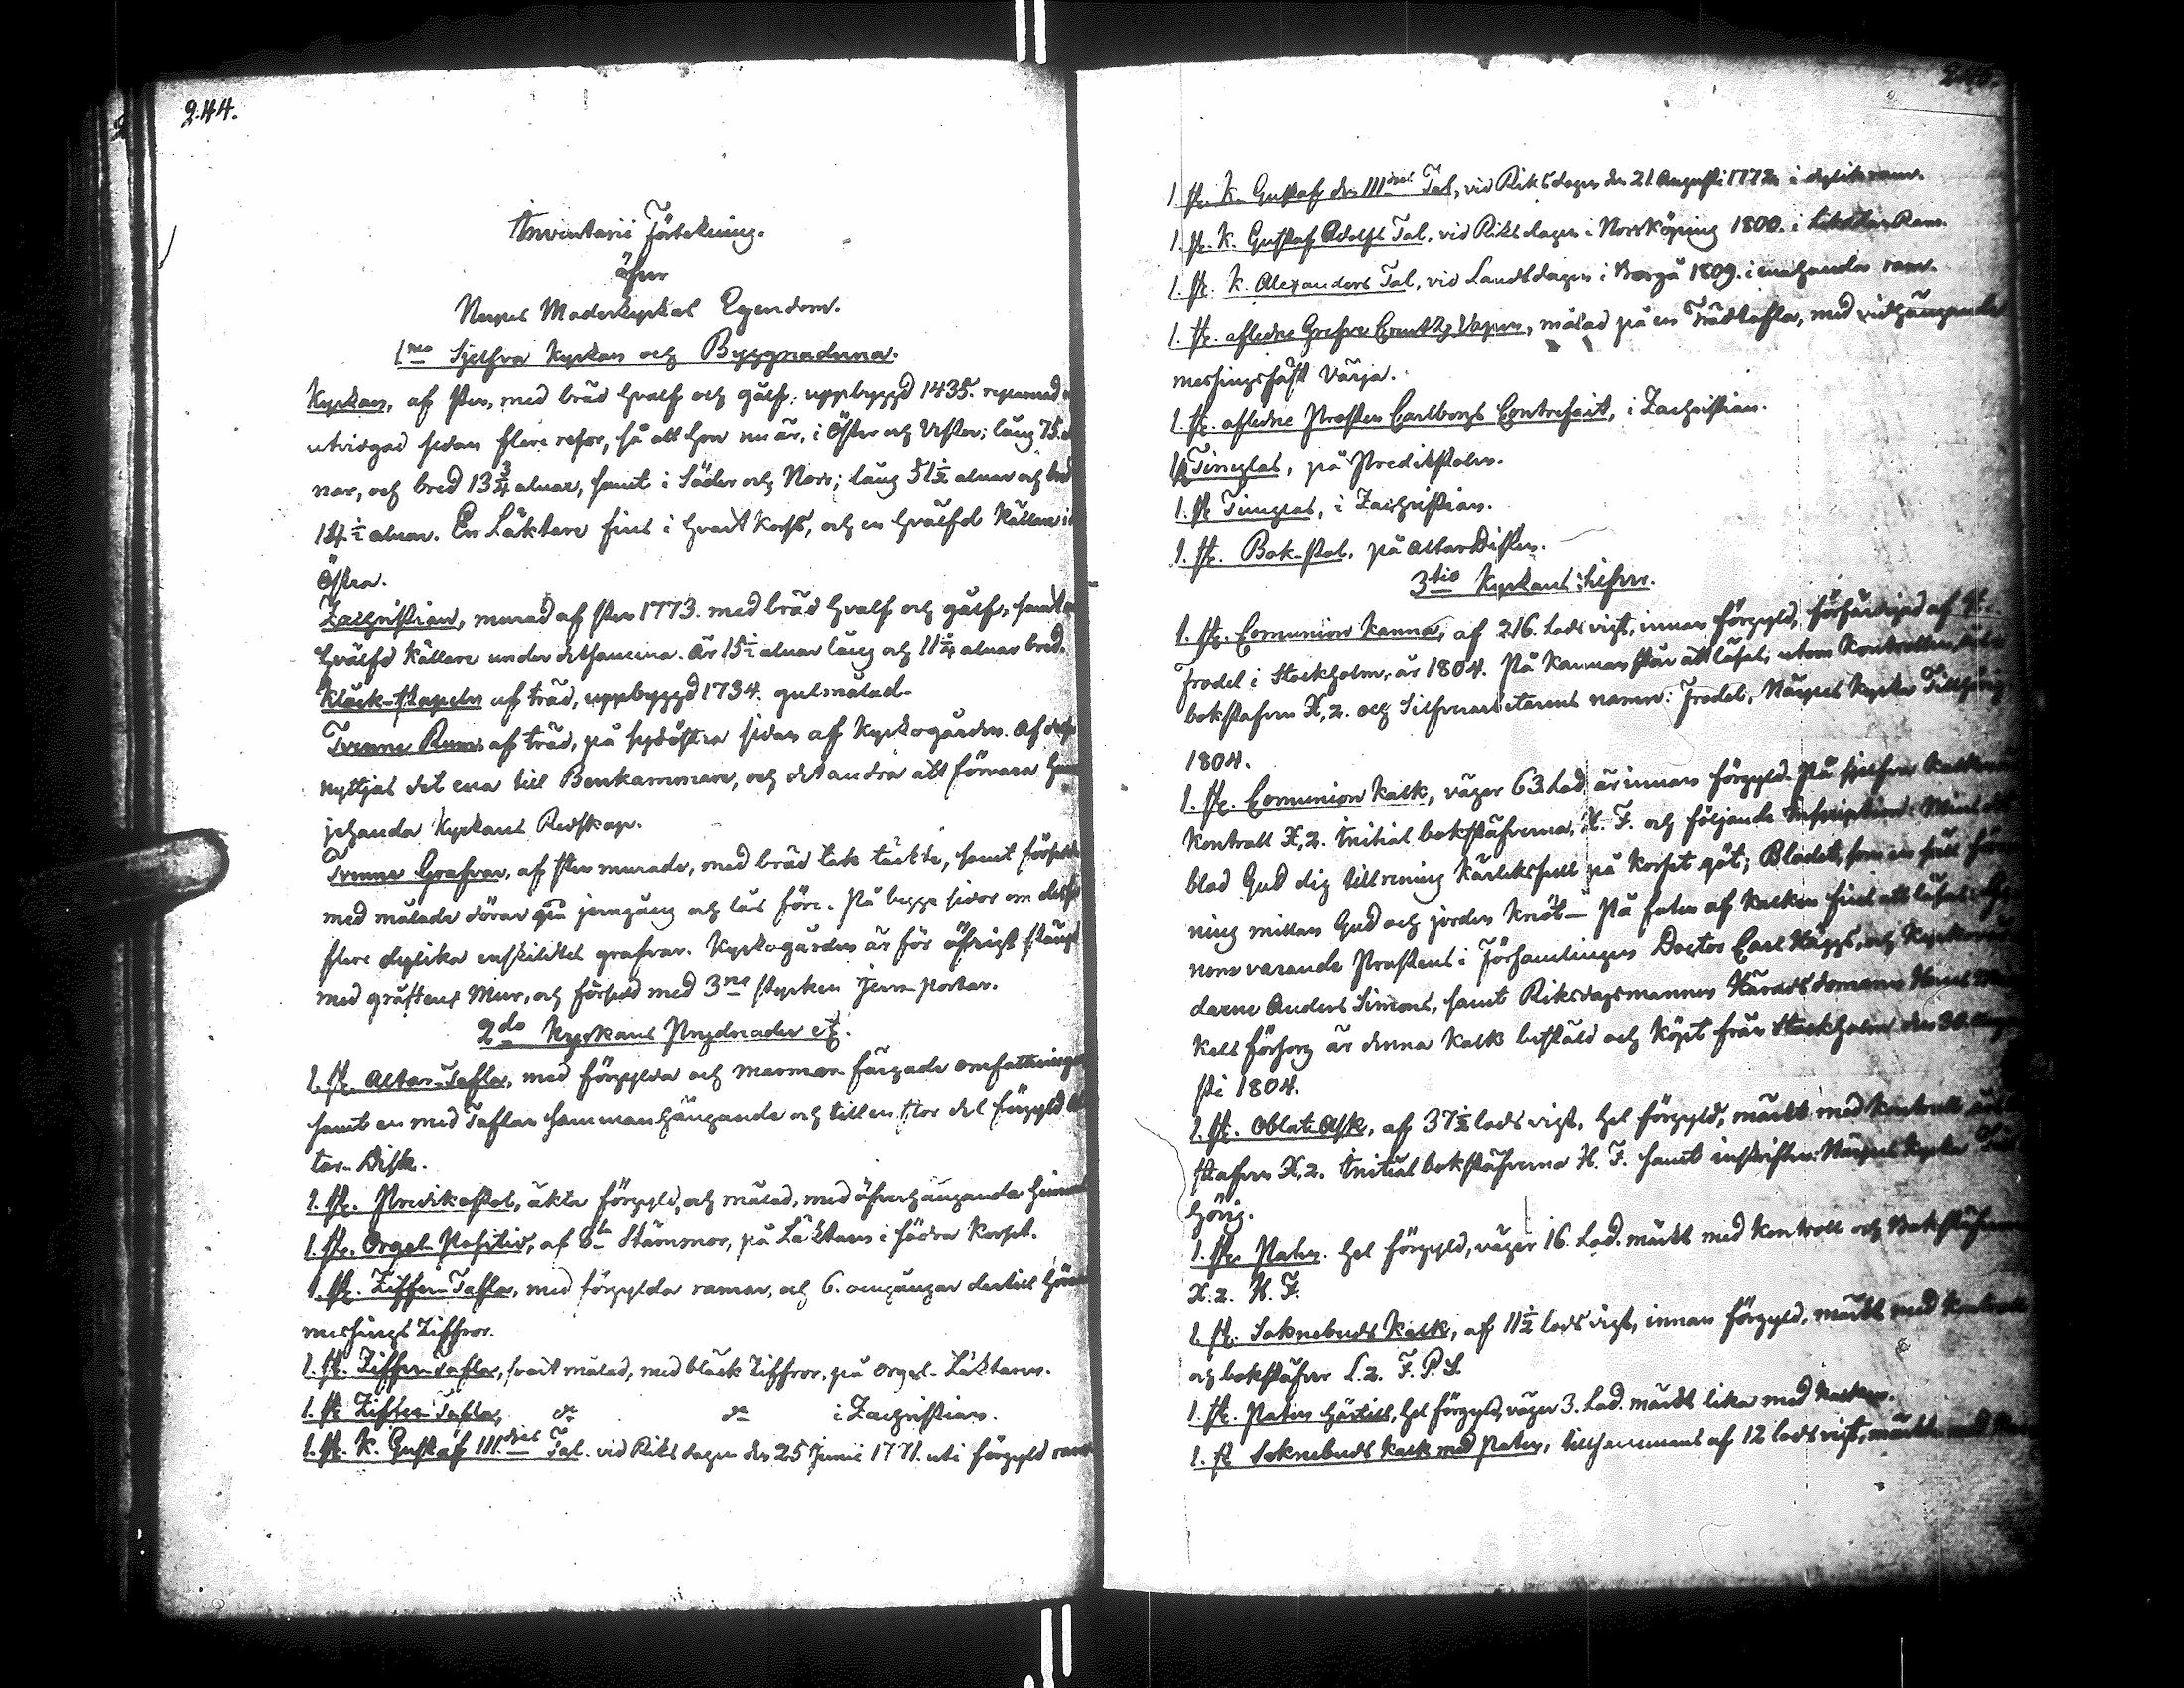 244.
Inventarii Förtekning.
öfver
Nerpes Moderkyrkas Egendom.
1mo Sjelfva Kyrkan och Byggnaderna.
Kyrkan, af sten, med bräd hvalf och gålf, uppbyggd 1435. reparerad
utvidgad sedan flere resor, så att hon nu är, i Öster och Vester; lång 75.
nar, och bred 13 3/4 alnar, samt i Söder och Norr; lång 51 1/2 alnar och bred
14 1/2 alnar. En Läktare fins i hvart Korss, och en hvälfd Källare i
Östra.
Zachristian, murad af sten 1773. med bräd hvalf och gålf, samt
hvälfd Källare under detsamma. Är 15 1/2 alnar lång och 11 1/4 alnar bred.
Klåck-stapeln af träd, uppbyggd 1734. gulmålad.
Tvenne Rum af träd, på sydöstra sidan af Kyrkogården. Af
nyttjas det ena till Benkammare, och det andra att förvara
jehanda Kyrkans Redskap.
Tvenne Grafvar, af sten murade, med bräd tak täckte, samt försedde
med målade dörar på jerngång och lås före. På begge sidor om
flere dylika enskildtes grafvar. Kyrkogården är för öfrigt stängd
med gråstens Mur, och försedd med 3ne stycken Jern portar.
2do Kyrkans Prydnader etc.
1. st. Altar-Tafla, med förgylda och marmor färgade omfattningar
samt en med Taflan sammanhängande och till en stor del förgyld
tar-Disk.
1. st. Predikostol, äkta förgyld, och målad, med öfverhängande
1. st. Orgel-Positiv, af 8ta Stämmor, på Läktaren i södra Korset.
1. st. Ziffer-Tafla, med förgylda ramar, och 6. omgångar dertill
messings Ziffror.
1. st. Ziffer-Tafla, svart målad, med bläck Ziffror, på Orgel-Läktaren.
1. st. Ziffer-Tafla, do do i Zachristian.
1. st. K. Gustaf III.djes Tal. vid Riksdagen den 25 Junii 1771. uti förgyld ram
1. st. K. Gustaf den III.djes Tal, vid Riksdagen den 21 Augusti 1772. i dylik ram.
1. st. K. Gustaf Adolfs Tal, vid Riksdagen i Norrköping 1800. i likadan Ram.
1. st. K. Alexanders Tal, vid Landtdagen i Borgå 1809. i enahanda ram.
1. st. aflidne Grefve Creutz Vapen, målad på en Trädtafla, med vidhängande
messingsfäst Värja.
1. st. aflidne Prosten Carlborgs Contrefait, i Zachristian.
1 st Timglas, på Predikstolen.
1. st Timglas, i Zachristian.
1. st. Bok-stol, på AltarDisken.
3tio Kyrkans Silfver.
1. st. Comunion Kanna, af 216. Lods vigt, innan förgyld, förfärdigad af
Frodel i Stockholm, år 1804. På Kannan står att läsas, utom Kontrollen,
bokstafven X, 2. och Silfverarbetarens namn: Frodel, Närpes Kyrka
1804.
1. st. Comunion Kalk, väger 63. Lod är innan förgyld. På sjelfva
Kontroll X, 2. Initial bokstäfverna, H. F. och följande Inscription:
blod Gud dig till rening Kärleksfull på Korset göt; Blodet, som en
ning mellan Gud och jorden Knöt— På foten af Kalken fins att läsas:
nom varande Prostens i Församlingen Doctor Carl och
darne Anders Simons, samt Riksdagsmannen Häradsdomaren
Kells försorg är denna Kalk bestäld och Köpt från Stockholm den 30.
sti 1804.
1. st. Oblat-Ask, af 37 1/2 lods vigt, hel förgyld, märkt med Kontroll
stafven X, 2. Initialbokstäfverna H. F. samt inskriften: Närpes Kyrka
hörig.
1. st. Paten. hel förgyld, väger 16. Lod. märkt med Kontroll och Bokstäfverna
X. 2. H. F.
1. st. Soknebuds Kalk, af 11 1/2 lods vigt, innan förgyld, märkt med Kontroll
och bokstäfver L. 2. F. P. S.
1. st. Paten härtill, hel förgyld, väger 3. Lod. märkt lika med Kalken.
1. st Soknebuds Kalk med Paten, tillsammans af 12 lods vigt, märkte med